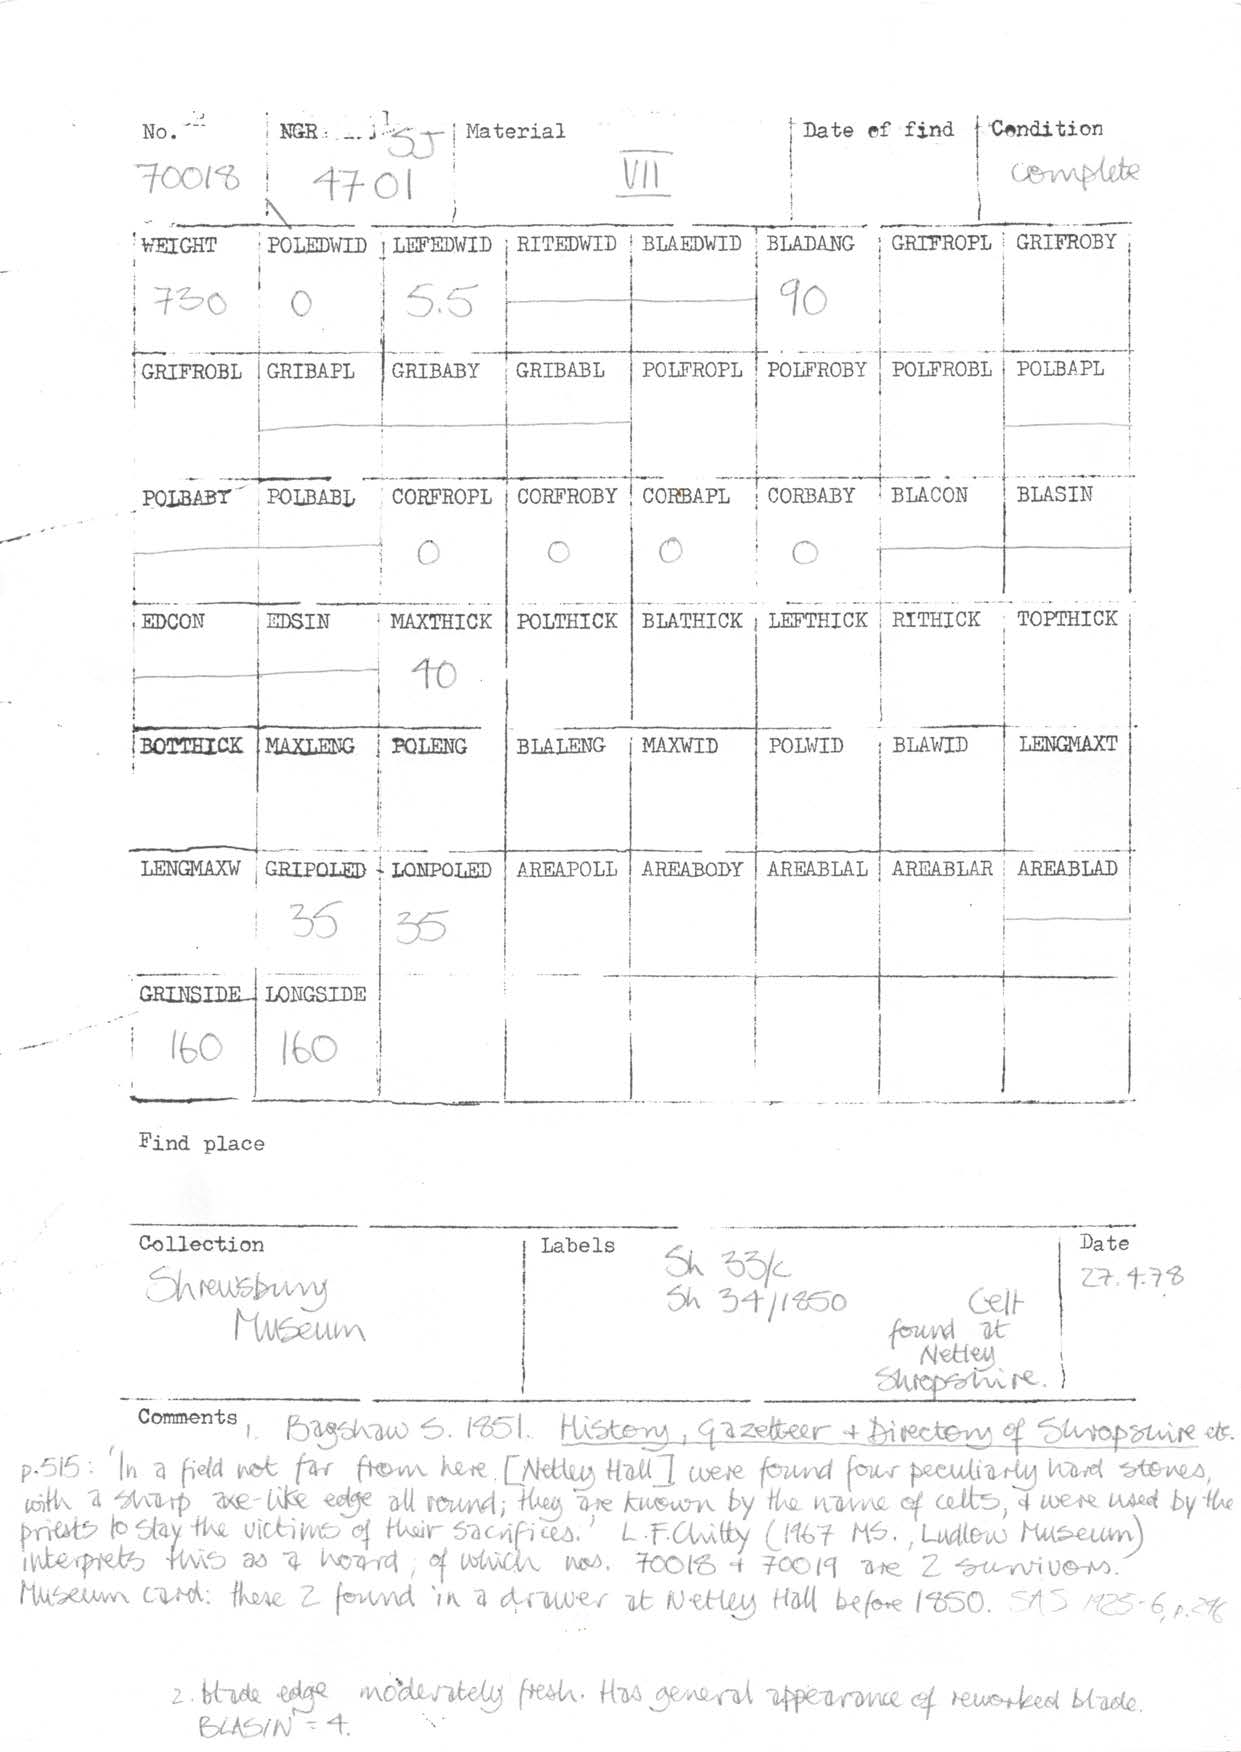 No. NGR SJ Material Date of find Condition
70018 4701 VII complete
WEIGHT POLEDWID LEFEDWID RITEDWID BLAEDWID BLADANG GRIFROPL GRIFROBY
730 0 5.5 90
GRIFROBL GRIBAPL GRIBABY GRIBABL POLFROPL POLFROBY POLFROBL POLBAPL
POLBABY POLBABL CORFROPL CORFROBY CORBAPL CORBABY BLACON BLASIN
0 0 0 0
EDCON EDSIN MAXTHICK POLTHICK BLATHICK LEFTHICK RITHICK TOPTHICK
40
BOTTHICK MAXLENG POLENG BLALENG MAXWID POLWID BLAWID LENGMAXT
LENGMAXW GRIPOLED LONPOLED AREAPOLL AREABODY AREABLAL AREABLAR AREABLAD
35 35
GRINSIDE LONGSIDE
160 160
Find place
Collection Labels Date
Shrewsbury
Museum
Sh 33/c
Sh 34/1850
Celt
found at
Netley
Shropshire.
27.4.78
Comments 1. Bagshaw S. 1851. History, Gazetteer + Directory of Shropshire etc.
p.515: 'In a field not far from here [Netley Hall] were found four peculiarly hard stones,
with a sharp axe-like edge all round; they are known by the name of celts, & were used by the
priests to slay the victims of their sacrifices.' L.F.Chitty (1967 MS., Ludlow Museum)
interprets this as a hoard, of which nos. 70018 + 70019 are 2 survivors.
Museum card: these 2 found in a drawer at Netley Hall before 1850. SAS 1925-6, p.
2. blade edge moderately fresh. Has general appearance of reworked blade.
BLASIN = 4.